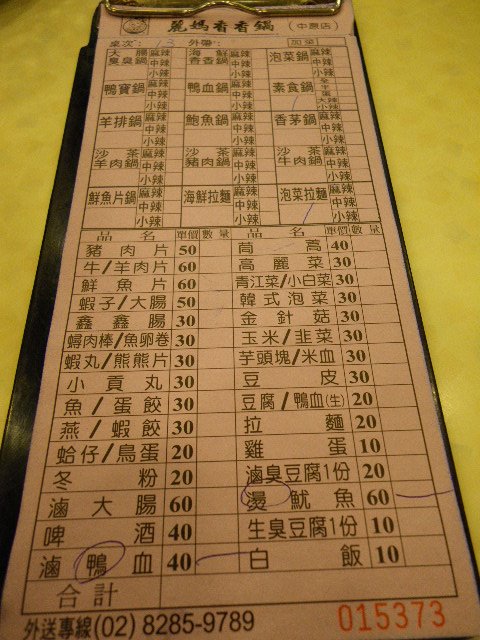 麗媽香香鍋 (中原店)
桌次: 外帶: 加菜
大腸臭臭鍋 麻辣 中辣 小辣 海鮮香香鍋 麻辣 中辣 小辣 泡菜鍋 麻辣 中辣 小辣
鴨寶鍋 麻辣 中辣 小辣 鴨血鍋 麻辣 中辣 小辣 素食鍋 大辣 小辣
羊排鍋 麻辣 中辣 小辣 鮑魚鍋 麻辣 中辣 小辣 香茅鍋 麻辣 中辣 小辣
沙茶羊肉鍋 麻辣 中辣 小辣 沙茶豬肉鍋 麻辣 中辣 小辣 沙茶牛肉鍋 麻辣 中辣 小辣
鮮魚片鍋 麻辣 中辣 小辣 海鮮拉麵 麻辣 中辣 小辣 泡菜拉麵 麻辣 中辣 小辣
品名 單價 數量 品名 單價 數量
豬肉片 50 茼蒿 40
牛/羊肉片 60 高麗菜 30
鮮魚片 60 青江菜/小白菜 30
蝦子/大腸 50 韓式泡菜 30
鑫鑫腸 30 金針菇 30
蟳肉棒/魚卵卷 30 玉米/韭菜 30
蝦丸/熊熊片 30 芋頭塊/米血 30
小貢丸 30 豆皮 30
魚/蛋餃 30 豆腐/鴨血(生) 20
燕/蝦餃 30 拉麵 20
蛤仔/鳥蛋 20 雞蛋 10
冬粉 20 滷臭豆腐1份 20
滷大腸 60 燙魷魚 60
啤酒 40 生臭豆腐1份 10
滷鴨血 40 白飯 10
合計
外送專線(02) 8285-9789 015373